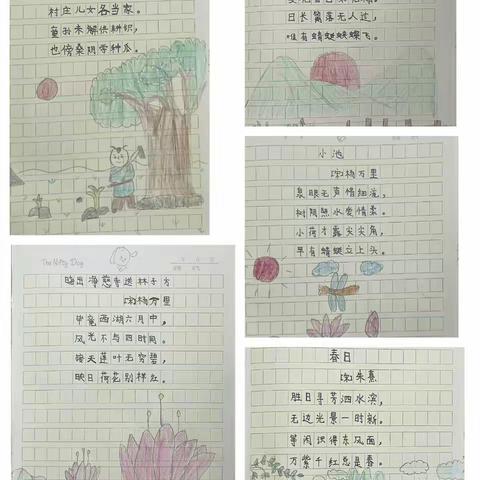 村庄儿女各当家。
童孙未解供耕织,
也傍桑阴学种瓜。
日长篱落无人过,
唯有蜻蜓蛱蝶飞。
小池
(宋)杨万里
泉眼无声惜细流,
树阴照水爱晴柔。
小荷才露尖尖角,
早有蜻蜓立上头。
The Nifty Dog
晓出净慈寺送林子方
(宋)杨万里
毕竟西湖六月中,
风光不与四时同。
接天莲叶无穷碧,
映日荷花别样红。
春日
(宋)朱熹
胜日寻芳泗水滨,
无边光景一时新。
等闲识得东风面,
万紫千红总是春。